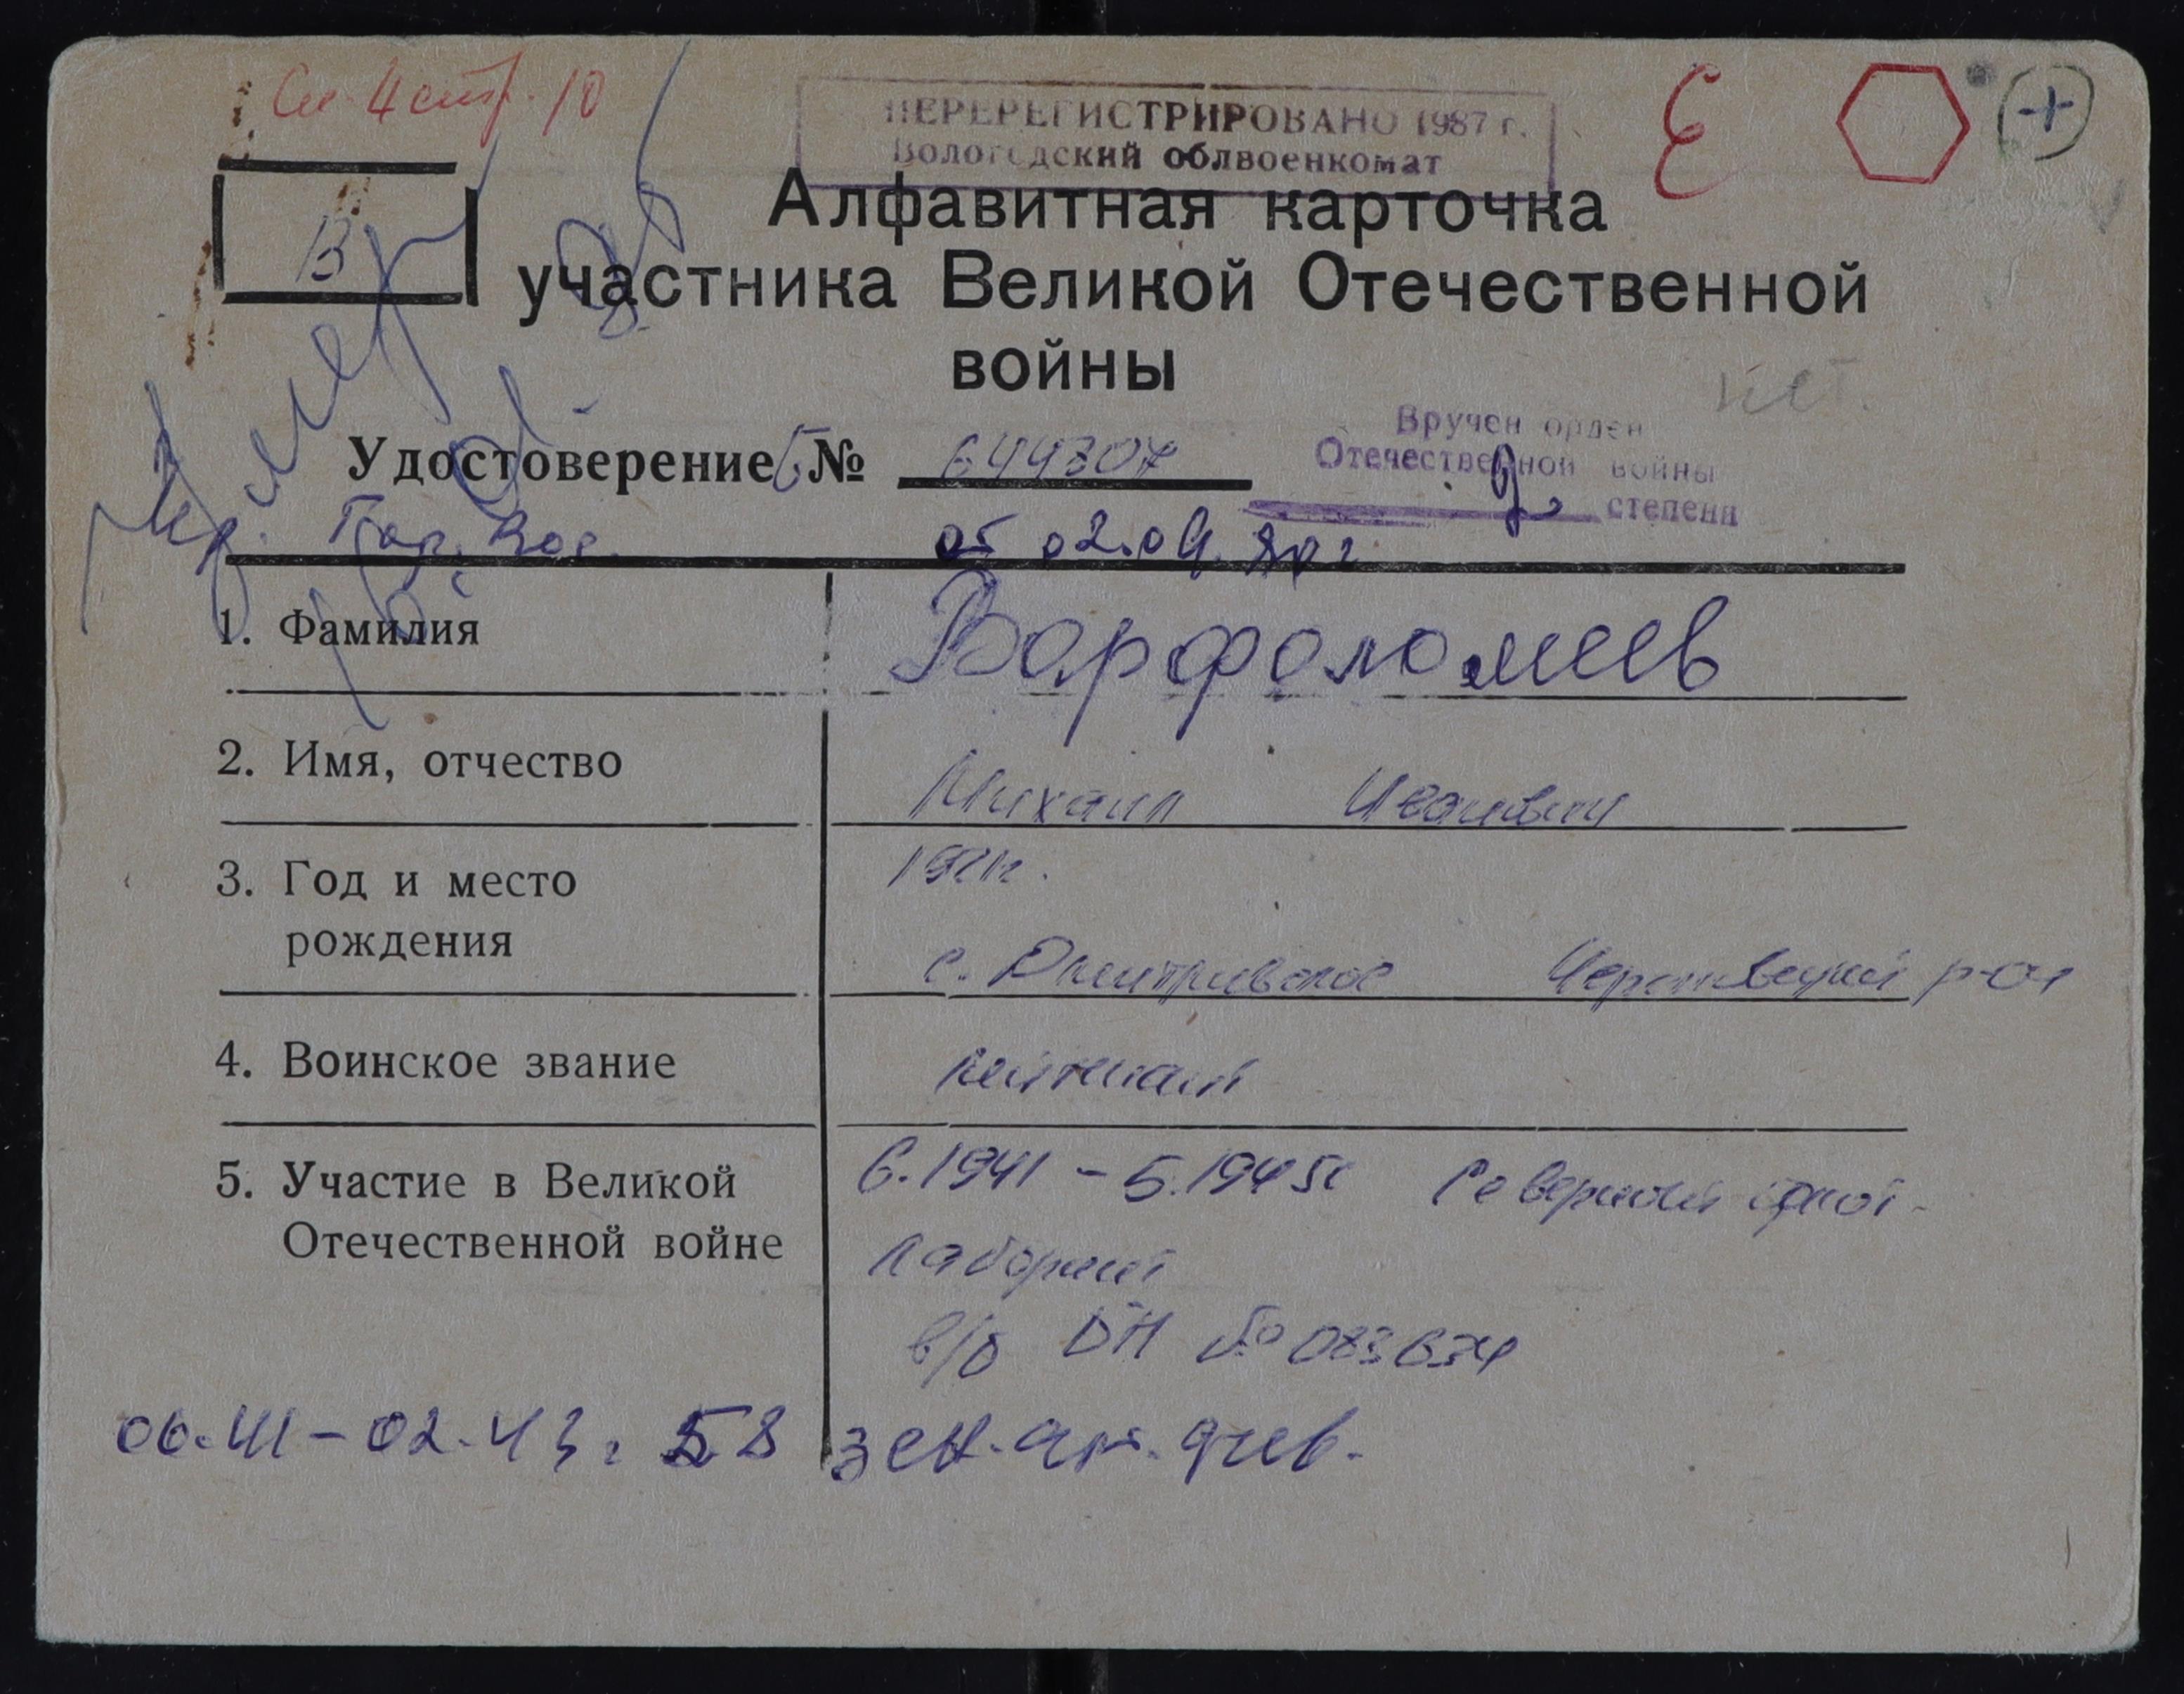 См. 4 стр. 10
ПЕРЕРЕГИСТРИРОВАНО 1987 г.
Вологодский облвоенкомат
Е
+
В
Алфавитная карточка
участника Великой Отечественной
войны
нет.
Умер
Вручен орден
Отечественной войны
2 степени
Удостоверение Б № 644307
от 02.04.80 г
1. Фамилия Варфоломеев
2. Имя, отчество Михаил Иванович
3. Год и место
рождения с. Дмитриевское Череповецкий р-он
4. Воинское звание лейтенант
5. Участие в Великой 6.1941 - 5.1945г Северный фронт
Отечественной войне
в/б БН №
06.41-02.43г 58 зен. ар. див.